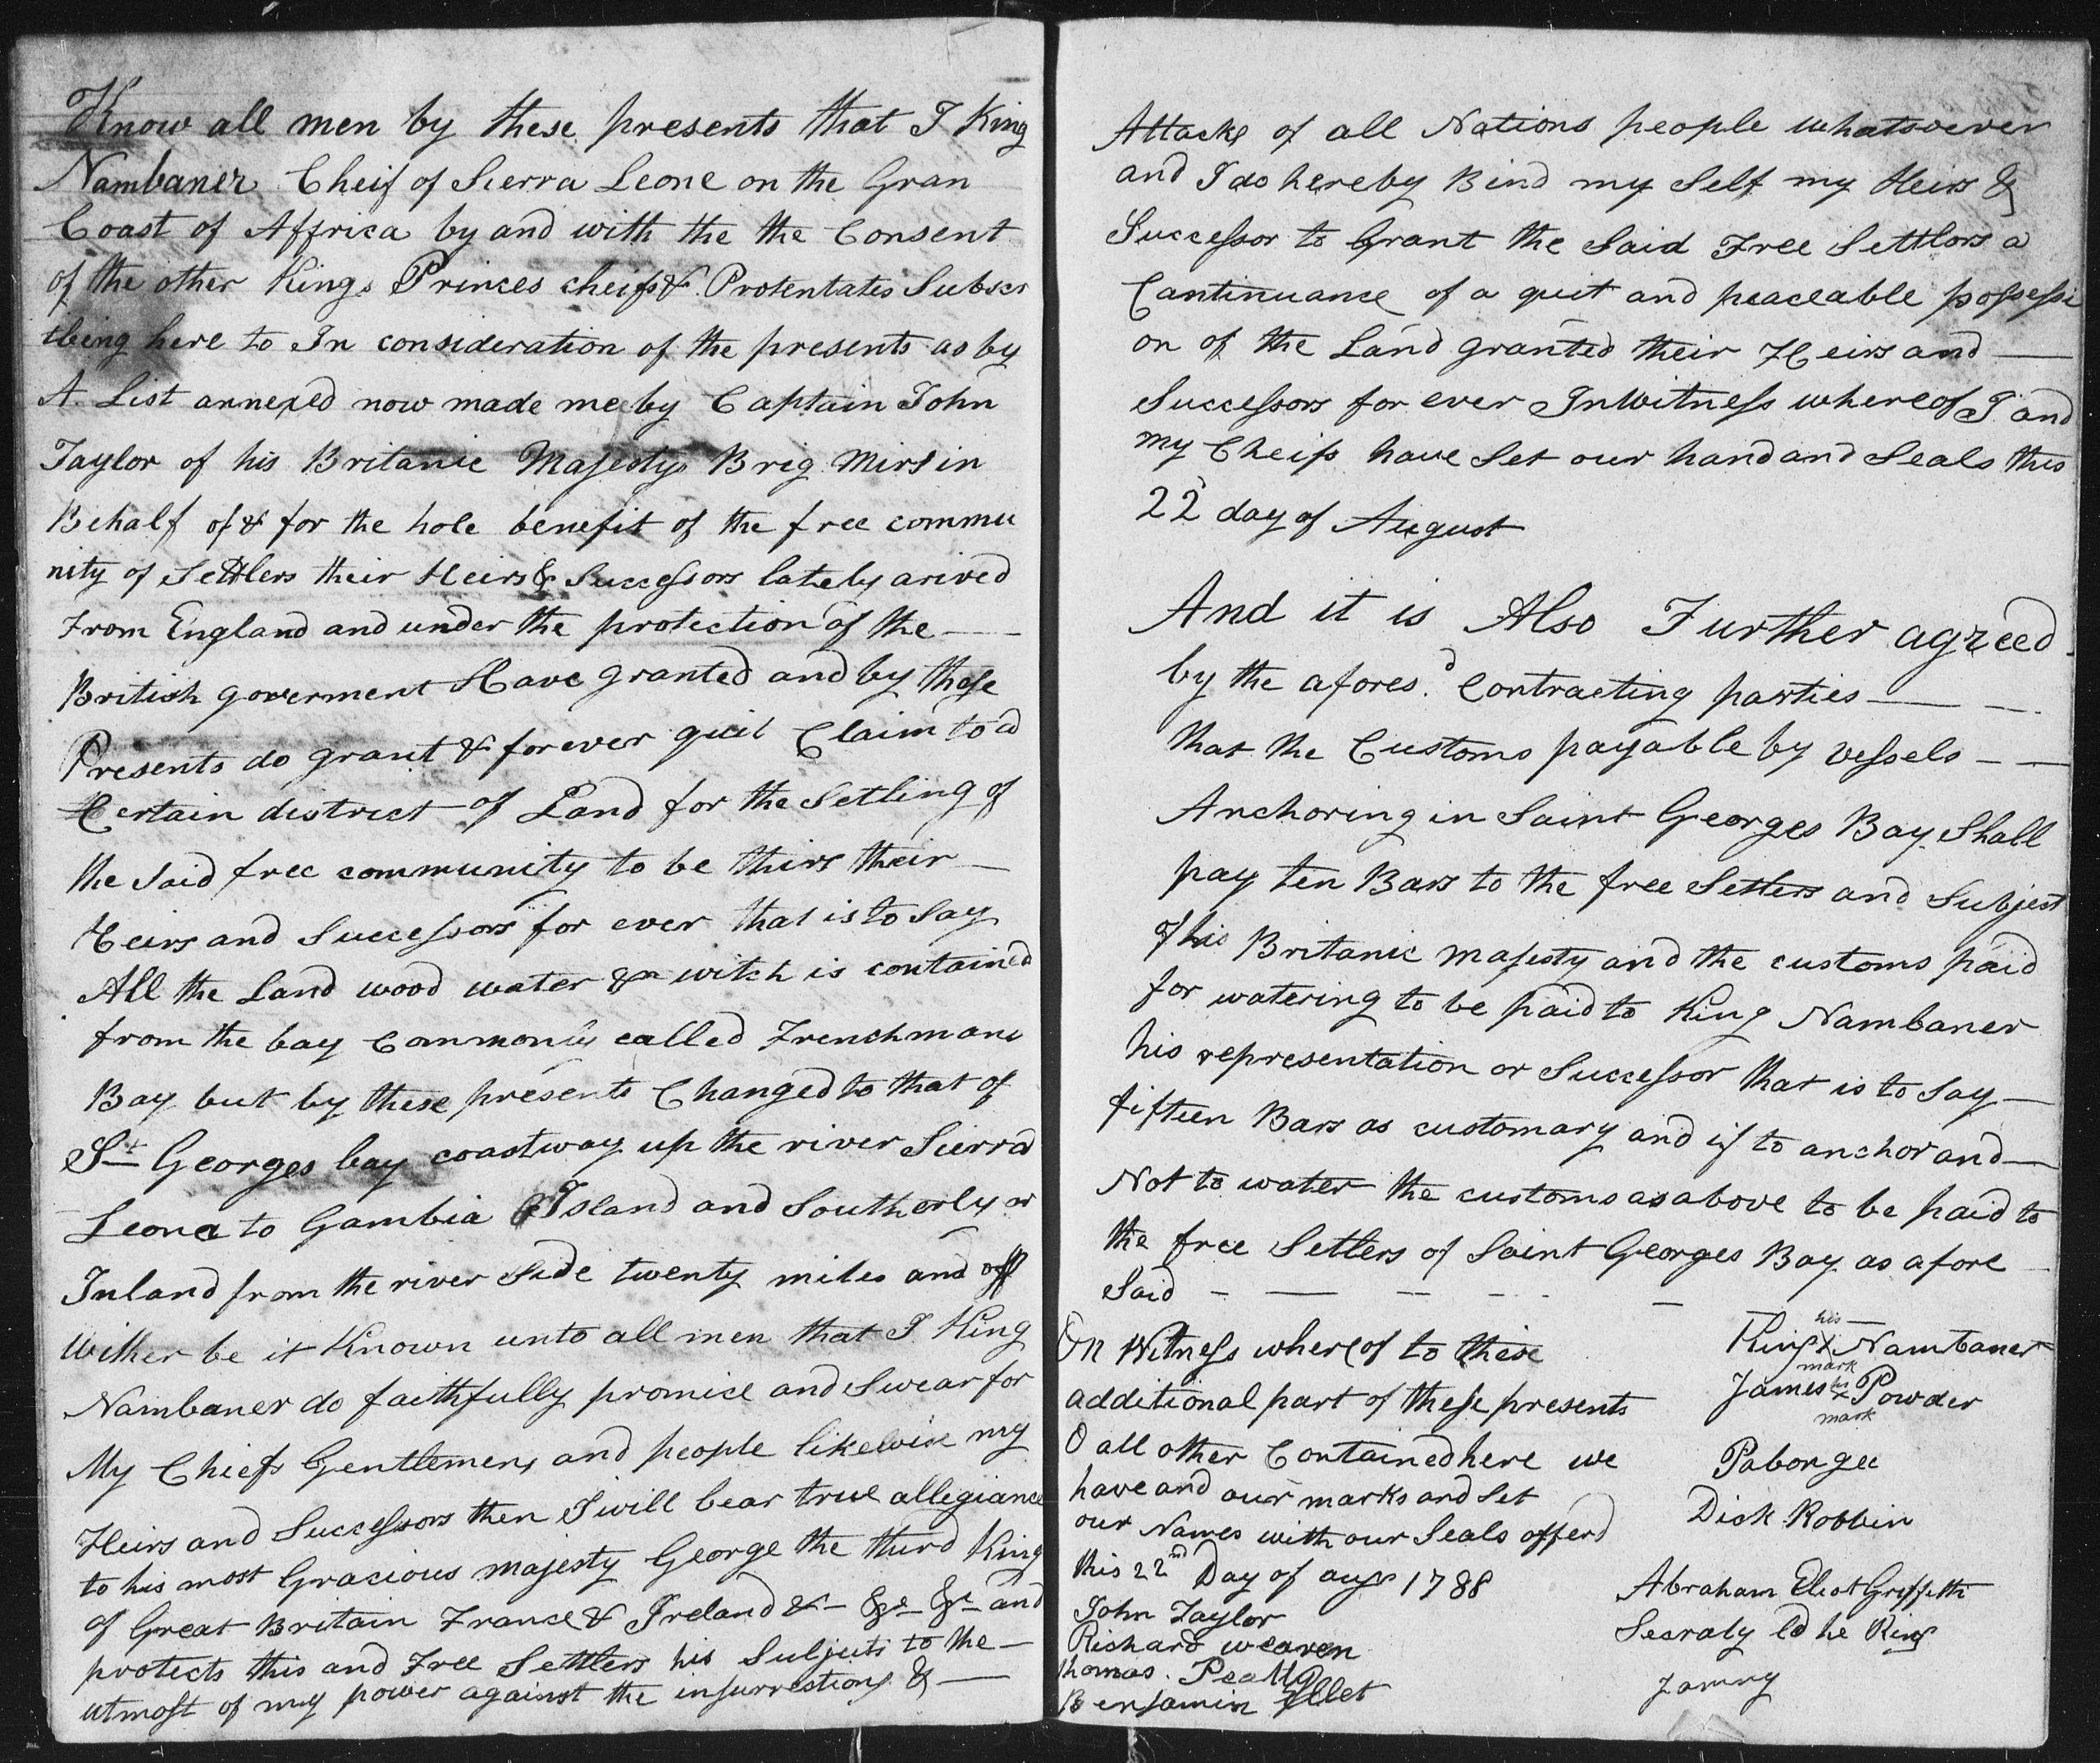 Know all men by these presents that I King
Nambaner Cheif of Sierra Leone on the Gran
Coast of Affrica by and with the the Consent
of the other Kings Princes cheifs & Protentates Subscr
ibeing here to In consideration of the presents as by
A List annexed now made me by Captain John
Taylor of his Britanic Majestys Brig Miro in
Behalf of & for the hole benefit of the free commu
nity of Settlers their Heirs & Successors lately arived
From England and under the protection of the
British goverment Have granted and by these
Presents do grant & forever quit Claim to a
Certain district of Land for the Setling of
the Said free community to be thirs their
Heirs and Successors for ever that is to Say
All the Land wood water &a witch is contained
from the bay Commonly called Frenchmans
Bay but by these presents Changed to that of
St Georges bay coastway up the river Sierra
Leona to Gambia Island and Southerly or
Inland from the river Side twenty miles and off
wither be it Known unto all men that I King
Nambaner do faithfully promise and Swear for
My Chiefs Gentlemens and people likewise my
Heirs and Successors then I will bear true allegiance
to his most Gracious majesty George the third King
of Great Britain France & Ireland &- &c- &c- and
protects this and Free Settlers his Subjects to the
utmost of my power against the insurrections &
Attacks of all Nations people whatsoever
and I do hereby Bind my Self my Heirs &
Successor to Grant the Said Free Settlors a
Cantinuance of a quit and peaceable possessi
on of the Land granted their Heirs and
Successors for ever In Witness whereof I and
my Cheifs have Set our hand and Seals this
22 day of August
And it is Also Further agreed
by the afores.d Contracting parties
that the Customs payable by vessels
Anchoring in Saint Georges Bay Shall
pay ten Bars to the free Setlers and Subject
of his Britanic majesty and the customs paid
for watering to be paid to King Nambaner
his representation or Successor that is to Say
fifteen Bars as customary and if to anchor and
Not to water the customs as above to be paid to
the free Setlers of Saint Georges Bay as afore
Said
On Witness whereof to these
additional part of these presents
O all other Contained here we
have and our marks and Set
our Names with our Seals offerd
this 22nd Day of augs 1788
John Taylor
Richard weaven
thomas. Peall
Benjamin Ellet
his
King X Nambaner
mark
James his x Powder
mark
Pabongee
Dick Robbin
Abraham Eliot Griffith
Secraty to he King